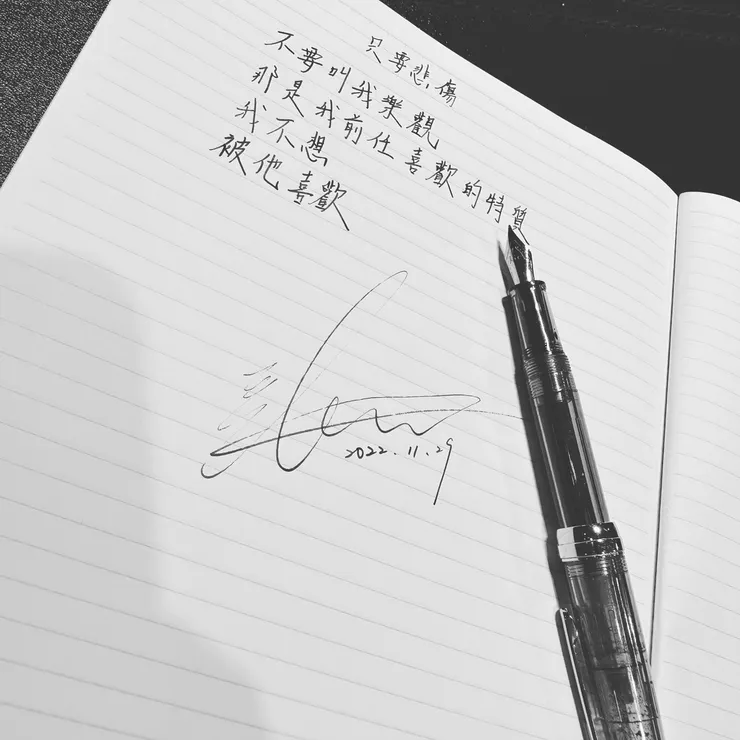 只要悲傷
不要叫我樂觀
那是我前任喜歡的特質
我不想
被他喜歡
2022.11.29